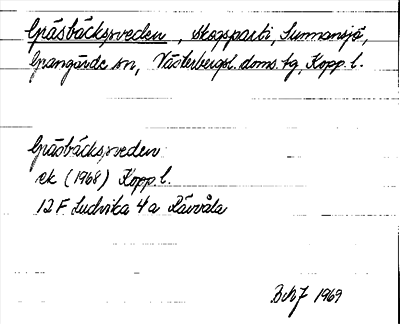 Gräsbäcksveden, skogsparti, Sunnansjö,
Grangärde sn, Västerbergsl. doms. tg, Kopp. l.
Gräsbäcksveden
ek (1968) Kopp l.
12 F Ludvika 4 a Rävvåla
1969